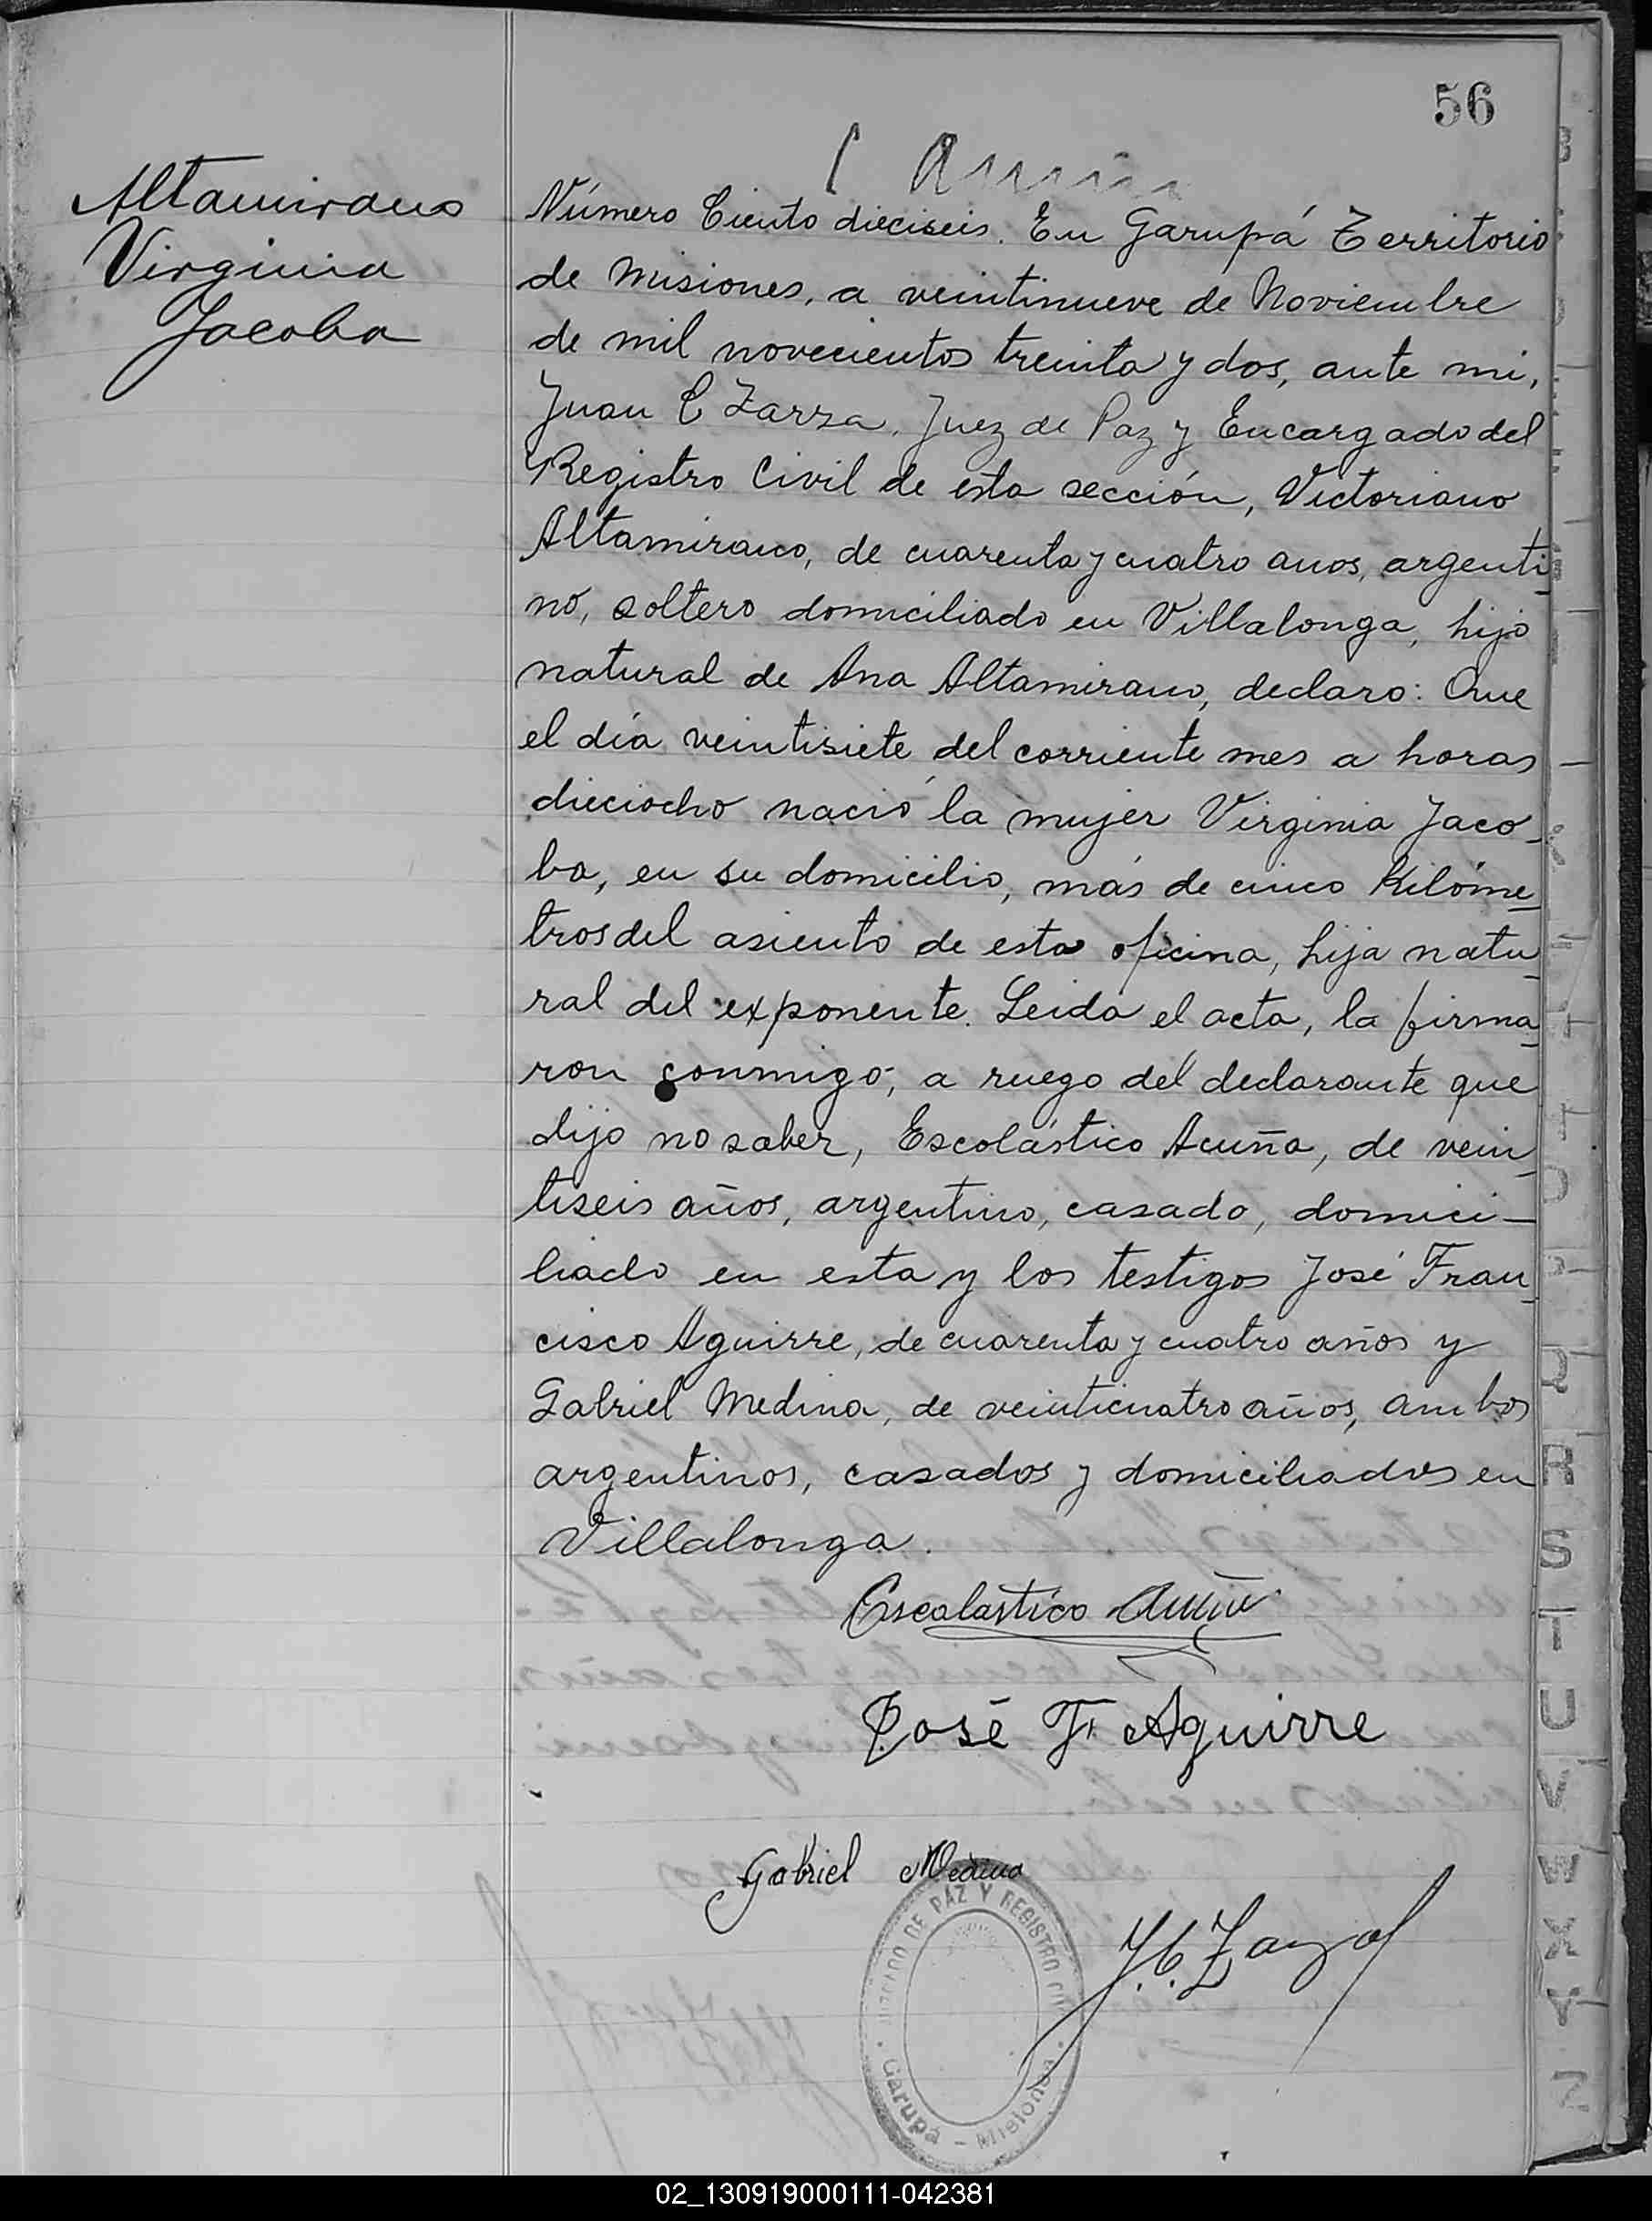 56
Altamirano
Virginia
Jacoba
Número Ciento dieciseis. En Garupá Territorio
de Misiones, a veintinueve de Noviembre
de mil novecientos treinta y dos, ante mi,
Juan C Zarza, Juez de Paz y Encargado del
Registro Civil de esta sección, Victoriano
Altamirano, de cuarenta y cuatro anos, argenti-
no, soltero domiciliado en Villalonga, hijo
natural de Ana Altamirano, declaro: Que
el día veintisiete del corriente mes a horas
dieciocho nació la mujer Virginia Jaco-
ba, en su domicilio, más de cinco Kilóme-
tros del asiento de esta oficina, hija natu-
ral del exponente. Leida el acta, la firma-
ron conmigo, a ruego del declarante que
dijo no saber, Escolástico Acuña, de vein-
tiseis años, argentino, casado, domici-
liado en esta y los testigos José Fran-
cisco Aguirre, de cuarenta y cuatro años y
Gabriel Medina, de veinticuatro años, ambos
argentinos, casados y domiciliados en
Villalonga.
Escolastico Acuña
José F. Aguirre
Gabriel Medina
J. C. Zarza
JUZGADO DE PAZ Y REGISTRO
Garupá - Misiones
R
S
T
U
V
W
X
Y
Z
02_130919000111-042381